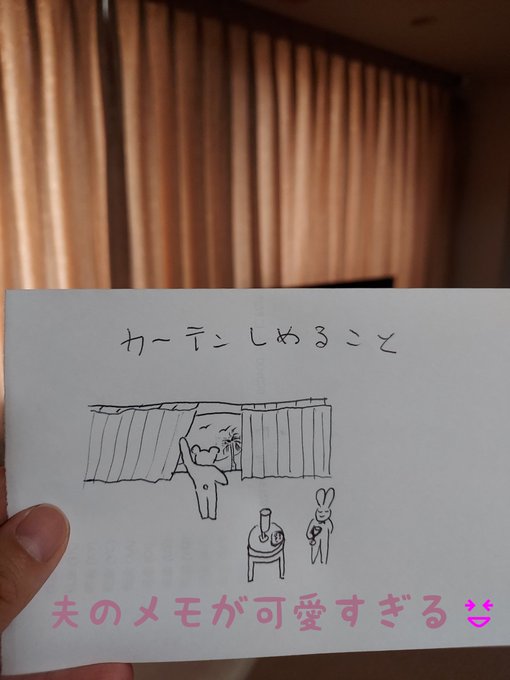 カーテンしめること
夫のメモが可愛すぎる